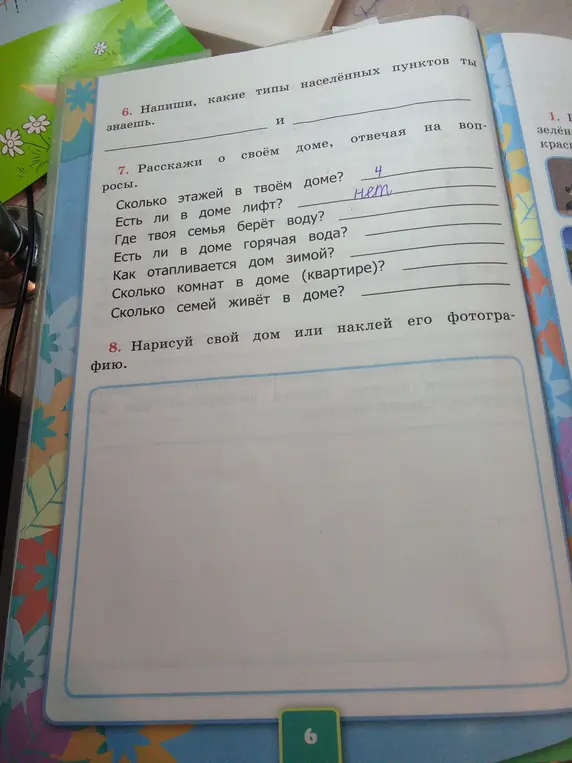 6. Напиши, какие типы населённых пунктов ты
знаешь. и
7. Расскажи о своём доме, отвечая на воп-
росы.
Сколько этажей в твоём доме? 4
Есть ли в доме лифт? нет
Где твоя семья берёт воду?
Есть ли в доме горячая вода?
Как отапливается дом зимой?
Сколько комнат в доме (квартире)?
Сколько семей живёт в доме?
8. Нарисуй свой дом или наклей его фотогра-
фию.
6
1.
зелён
крас